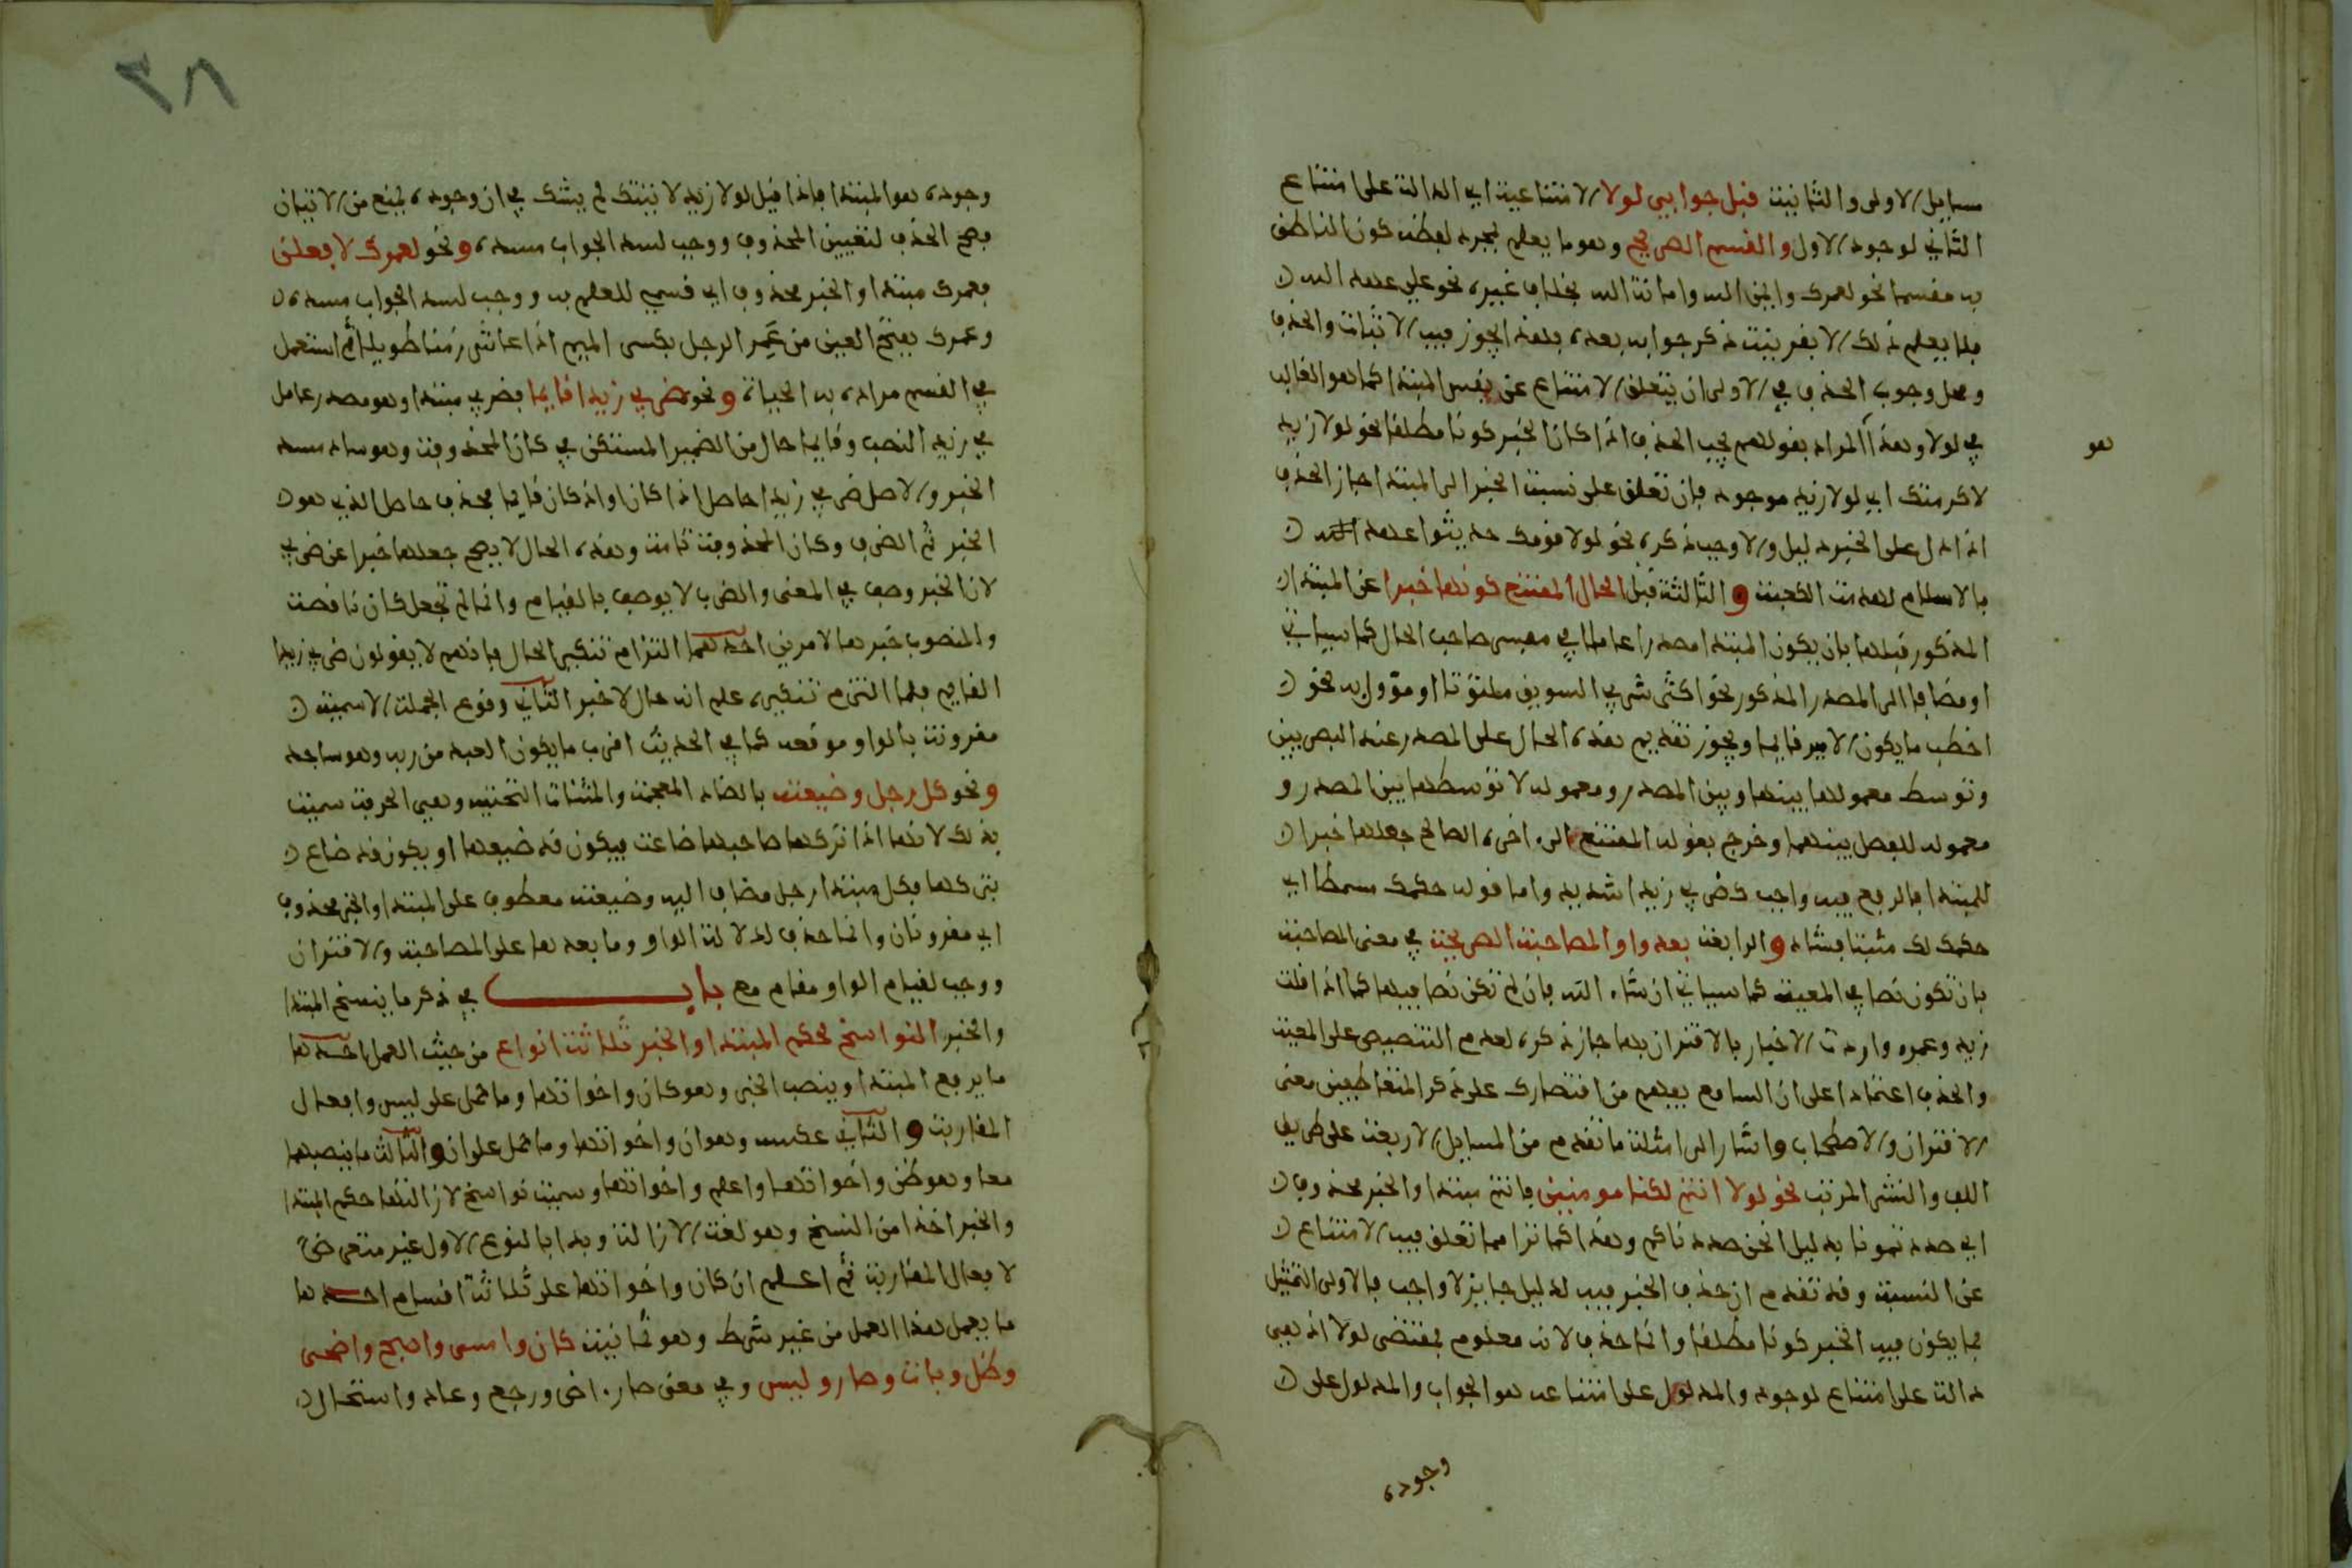 مسايل الاولى والثانية قبل جوابي لولا الامتناعية اي الدالة على امتناع
الثاني لوجود الاول والقسم الصريح وهو ما يعلم بمجرد لفظه كون الناطق
به مقسما نحو لعمرك وايمن الله وامانة الله بخلاف غيره نحو علي عهد الله
فلا يعلم ذلك الا بقرينة ذكر جوابه بعده فلهذا يجوز فيه الاثبات والحذف
ومحل وجوب الحذف في الاولى ان يتعلق الامتناع عن نفس المبتدا كما هو الغالب
في لولا وهذا المراد بقولهم يجب الحذف اذا كان الخبر كونا مطلقا نحو لولا زيد
هو
لاكرمتك اي لولا زيد موجود فان تعلق على نسبة الخبر الى المبتدا جاز الحذف
اذا دل على الخبر دليل والا وجب ذكره نحو لولا قومك حديثوا عهد
بالاسلام لهدمت الكعبة والثالثة قبل الحال الممتنع كونها خبرا عن المبتدا
المذكور قبلها بان يكون المبتدا مصدرا عاملا في مفسر صاحب الحال كما سياتي
او مضافا الى المصدر المذكور نحو اكثر شربي السويق ملتوتا او مؤول به نحو
اخطب ما يكون الامير قايما ويجوز تقديم هذه الحال على المصدر عند البصريين
وتوسط معمولها بينها وبين المصدر ومعموله لا توسطها بين المصدر و
معموله للفصل بينهما وخرج بقوله الممتنع الى اخره الصالح جعلها خبرا
للمبتدا فالرفع فيه واجب كضربي زيدا شديد واما قوله حكمك مسمطا اي
حكمك لك مثبتا فشاذ والرابعة بعد واو المصاحبة الصريحة في معنى المصاحبة
بان تكون نصا في المعية كما سياتي ان شاء الله فان لم تكن نصا فيها كما اذا قلت
زيد وعمرو واردت الاخبار بالاقتران بها جاز ذكره لعدم التنصيص على المعية
والحذف اعتمادا على ان السامع يفهم من اقتصارك على ذكر المتعاطفين معنى
الاقتران والاصطحاب واشار الى امثلة ما تقدم من المسايل الاربعة على طريق
اللف والنشر المرتب نحو لولا انتم لكنا مومنين فانتم مبتدا والخبر محذوف
اي صددتمونا بدليل انحن صددناكم وهذا كما ترا مما تعلق فيه الامتناع
عن النسبة وقد تقدم ان حذف الخبر فيه لدليل جايز لا واجب فالاولى التمثيل
بما يكون فيه الخبر كونا مطلقا وانما حذف لانه معلوم بمقتضى لولا اذ هي
دالة على امتناع لوجود والمدلول على امتناعه هو الجواب والمدلول على
وجوده
٣٨
وجوده هو المبتدا فاذا قيل لولا زيد لاتيتك لم يشك في ان وجوده يمنع من الاتيان
فصح الحذف لتعيين المحذوف ووجب لسد الجواب مسده ونحو لعمرك لافعلن
فعمرك مبتدا والخبر محذوف اي قسمي للعلم به ووجب لسد الجواب مسده
وعمرك بفتح العين من عمر الرجل بكسر الميم اذا عاش زمنا طويلا ثم استعمل
في القسم مرادا به الحياة ونحو ضربي زيدا قايما فضربي مبتدا وهو مصدر عامل
في زيد النصب وقايما حال من الضمير المستكن في كان المحذوفة وهو ساد مسد
الخبر والاصل ضربي زيدا حاصل اذا كان او اذ كان قايما فحذف حاصل الذي هو
الخبر ثم الظرف وكان المحذوفة تامة وهذه الحال لا يصح جعلها خبرا عن ضربي
لان الخبر وصف في المعنى والضرب لا يوصف بالقيام وانما لم تجعل كان ناقصة
والمنصوب خبرها لامرين احدهما التزام تنكير الحال فانهم لا يقولون ضربي زيدا
القايم فلما التزم تنكيره علم انه حال لا خبر الثاني وقوع الجملة الاسمية
مقرونة بالواو موقعه كما في الحديث اقرب ما يكون العبد من ربه وهو ساجد
ونحو كل رجل وضيعته بالضاد المعجمة والمثناة التحتية وهي الحرفة سميت
بذلك لانها اذا تركها صاحبها ضاعت فيكون قد ضيعها او يكون قد ضاع
بتركها فكل مبتدا رجل مضاف اليه وضيعته معطوف على المبتدا والخبر محذوف
اي مقرونان وانما حذف لدلالة الواو وما بعدها على المصاحبة والاقتران
ووجب لقيام الواو مقام مع باب في ذكر ما ينسخ المبتدا
والخبر النواسخ لحكم المبتدا والخبر ثلاثة انواع من حيث العمل احدها
ما يرفع المبتدا وينصب الخبر وهو كان واخواتها وما حمل على ليس وافعال
المقاربة والثاني عكسه وهو ان واخواتها وما حمل على ان والثالث ما ينصبهما
معا وهو ظن واخواتها واعلم واخواتها وسميت نواسخ لازالتها حكم المبتدا
والخبر اخذا من النسخ وهو لغة الازالة وبدا بالنوع الاول غير متعرض
لافعال المقاربة ثم اعلم ان كان واخواتها على ثلاثة اقسام احدها
ما يعمل هذا العمل من غير شرط وهو ثمانية كان وامسى واصبح واضحى
وظل وبات وصار وليس وفي معنى صار اض ورجع وعاد واستحال